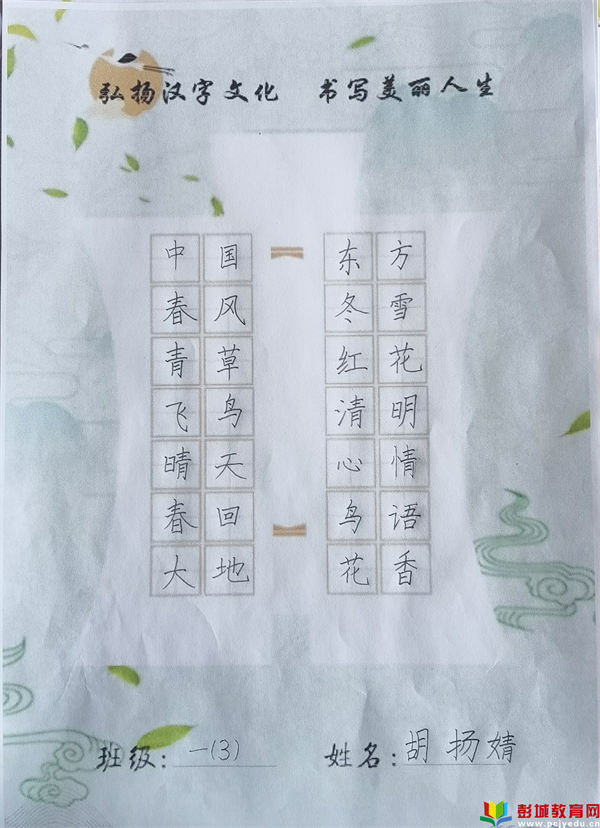 弘扬汉字文化 书写美丽人生
中国 东方
春风 冬雪
青草 红花
飞鸟 清明
晴天 心情
春回 鸟语
大地 花香
班级:一(3) 姓名:胡扬婧
彭城教育网
www.pcjyedu.cn